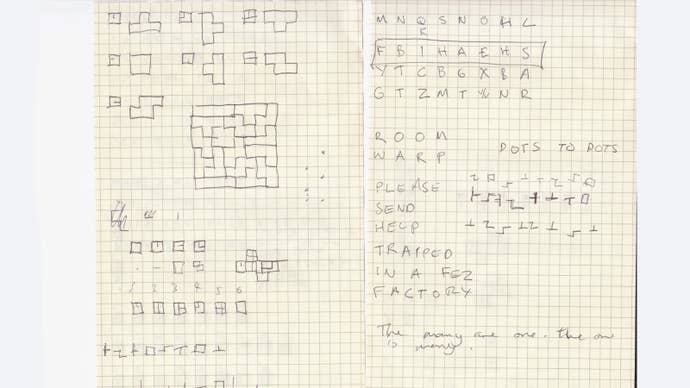 1 2 3 4 5 6
M N Q S N O H L
K
F B I H A E H S
Y T C B G X B A
G T Z M T N R
ROOM
WARP
DOTS TO DOTS
PLEASE
SEND
HELP
TRAPPED
IN A FEZ
FACTORY
The many are one. The one
is many.